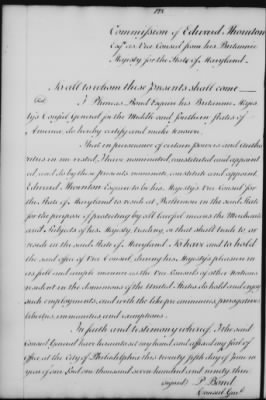 Commission of Edward Thornton
Esqr. as Vice Consul from his Britannic
Majesty for the State of Maryland.
To all to whom these presents shall come
I Phineas Bond Esquire his Britannic Majes
ty's Consul General for the Middle and Southern States of
America, do hereby certify and make known.
That in pursuance of certain powers and Autho
rities in me vested, I have nominated, constituted and appoint
ed, and do by these presents nominate, constitute and appoint
Edward Thornton Esquire to be his Majesty's Vice Consul for
the State of Maryland to reside at Baltimore in the said State
for the purpose of protecting by all lawful means the Merchants
and Subjects of his Majesty, trading, or that shall trade to, or
reside in the said State of Maryland. To have and to hold
the said office of Vice Consul during his Majesty's pleasure in
as full and ample manner as the Vice Consuls of other Nations
resident in the dominions of the United States do hold and enjoy
such employments, and with the like preeminences, prerogatives
liberties, immunities and exemptions.
In faith and testimony whereof I the said
Consul General have hereunto set my hand and affixed my seal of
office at the City of Philadelphia this twenty fifth day of June in
year of our Lord one thousand seven hundred and ninety three
(signed) P. Bond
Consul Genl.